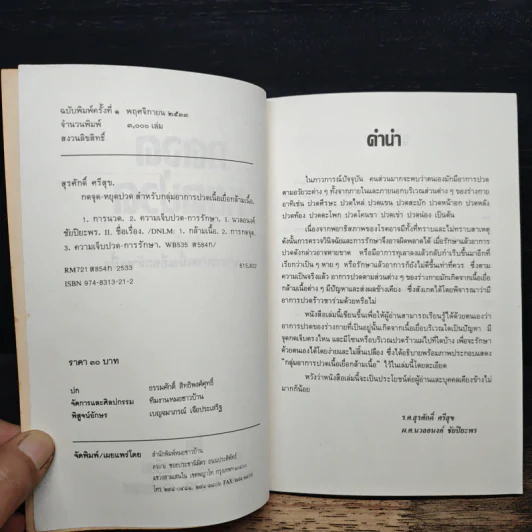 ฉบับพิมพ์ครั้งที่ ๑ พฤศจิกายน ๒๕๓๓
จำนวนพิมพ์ ๓,๐๐๐ เล่ม
สงวนลิขสิทธิ์
สุรศักดิ์ ศรีสุข.
กดจุด-หยุดปวด สำหรับกลุ่มอาการปวดเนื้อเยื่อกล้ามเนื้อ.
1. การนวด. 2. ความเจ็บปวด-การรักษา. I นวลอนงค์
ชัยปิยะพร. II. ชื่อเรื่อง. /DNLM: 1. กล้ามเนื้อ. 2. การกดจุด.
3. ความเจ็บปวด-การรักษา. WB535 ส584ก/
RM721 ส854ก 2533 615.822
ISBN 974-8313-21-2
ราคา ๓๐ บาท
ปก ธรรมศักดิ์ สิทธิพงศ์ศุทธิ์
จัดการและศิลปกรรม ทีมงานหมอชาวบ้าน
พิสูจน์อักษร เบญจมาภรณ์ เจือประเสริฐ
จัดพิมพ์/เผยแพร่โดย สำนักพิมพ์หมอชาวบ้าน
ซอยประชานิมิตร ถนนประดิพัทธ์
แขวงสามเสนใน เขตพญาไท กรุงเทพฯ
คำนำ
ในภาวการณ์ปัจจุบัน คนส่วนมากจะพบว่าตนเองมักมีอาการปวด
ตามอวัยวะต่าง ๆ ทั้งจากภายในและภายนอกบริเวณส่วนต่าง ๆ ของร่างกาย
อาทิเช่น ปวดศีรษะ ปวดไหล่ ปวดแขน ปวดสะบัก ปวดหน้าอก ปวดหลัง
ปวดท้อง ปวดตะโพก ปวดโคนขา ปวดเข่า ปวดน่อง เป็นต้น
เนื่องจากพยาธิสภาพของโรคอาจมีทั้งที่ทราบและไม่ทราบสาเหตุ
ดังนั้นการตรวจวินิจฉัยและการรักษาจึงอาจผิดพลาดได้ เมื่อรักษาแล้วอาการ
ปวดดังกล่าวอาจหายขาด หรือมีอาการทุเลาลงแล้วกลับกำเริบขึ้นมาอีกที่
เรียกว่าเป็น ๆ หาย ๆ หรือรักษาแล้วอาการก็ยังไม่ดีขึ้นเท่าที่ควร ซึ่งตาม
ความเป็นจริงแล้ว อาการปวดตามส่วนต่าง ๆ ของร่างกายมักเกิดจากเนื้อเยื่อ
กล้ามเนื้อต่าง ๆ มีปัญหาและส่งผลข้างเคียง ซึ่งสังเกตได้โดยพิจารณาว่ามี
อาการปวดร้าวชาร่วมด้วยหรือไม่
หนังสือเล่มนี้เขียนขึ้นเพื่อให้ผู้อ่านสามารถเรียนรู้ได้ด้วยตนเองว่า
อาการปวดของร่างกายที่เป็นอยู่นั้นเกิดจากเนื้อเยื่อบริเวณใดเป็นปัญหา มี
จุดกดเจ็บตรงไหน และมีโซนหรือบริเวณปวดร้าวแผ่ไปที่ใดบ้าง เพื่อจะรักษา
ด้วยตนเองได้โดยง่ายและไม่สิ้นเปลือง ซึ่งได้อธิบายพร้อมภาพประกอบแสดง
"กลุ่มอาการปวดเนื้อเยื่อกล้ามเนื้อ" ไว้ในเล่มนี้โดยละเอียด
หวังว่าหนังสือเล่มนี้จะเป็นประโยชน์ต่อผู้อ่านและบุคคลเคียงข้างไม่
มากก็น้อย
ร.ศ.สุรศักดิ์ ศรีสุข
ผ.ศ.นวลอนงค์ ชัยปิยะพร